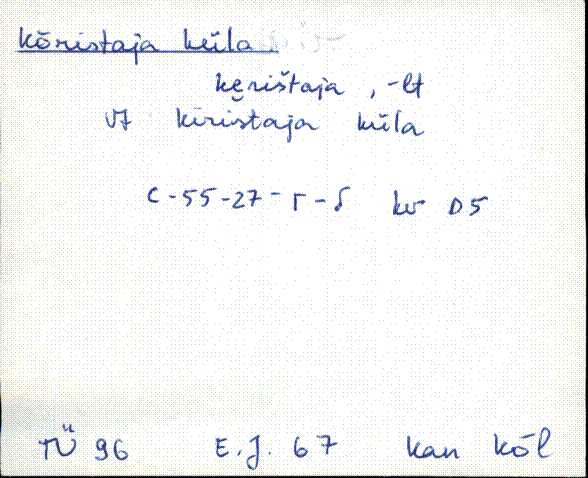 Kõristaja küla
kęrištaja, -lt
v7 kiristaja küla
C-55-27-Г-б kv D5
TÜ 96 E.J. 67 kan Kõl